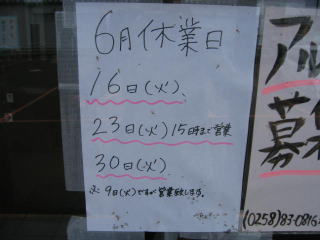 6月休業日
16日(火)、
23日(火)15時まで営業
30日(火)、
※ 9日(火)ですが営業致します。
アル
募
(0258)83-0816